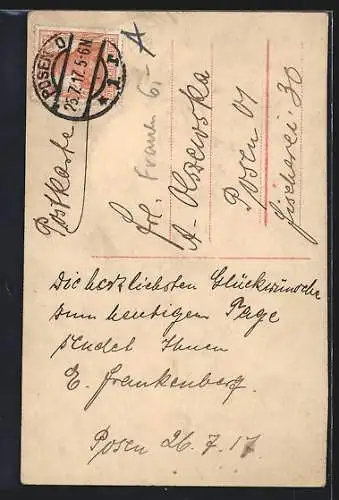 POSEN O
25.7.17.5-6N
Postkarte
A
Franken 6,-
Frl.
A. Olszewska
Posen O1
Fischerei 30
Die herzlichsten Glückwünsche
zum heutigen Tage
sendet Ihnen
E. Frankenberg.
Posen 26.7.17.